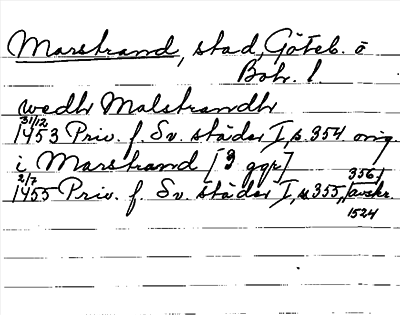 Marstrand, stad, Göteb. o
Boh. l.
wedh Malstrandh
31/12
1453 Priv. f. Sv. städer I, s. 354 orig.
i Marstrand [3 ggr]
2/7 356,
1455 Priv. f. Sv. städer I, s. 355, avskr.
1524